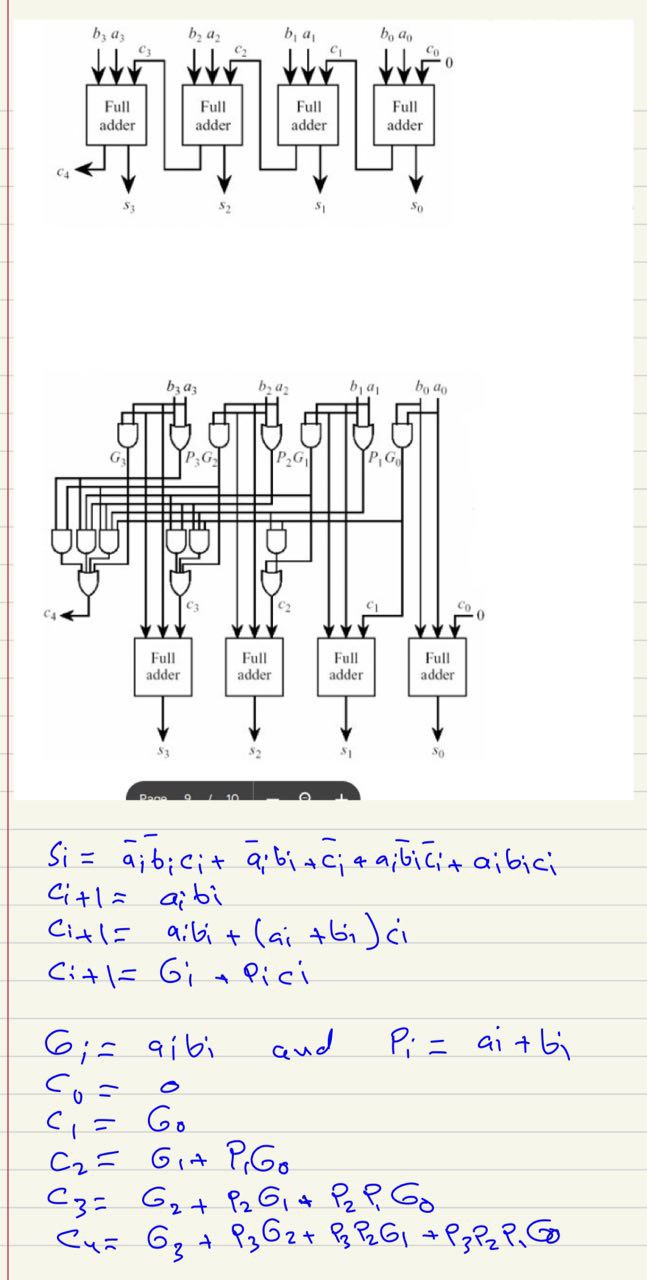 b₃ a₃ b₂ a₂ b₁ a₁ b₀ a₀
c₃ c₂ c₁ c₀ 0
Full adder Full adder Full adder Full adder
c₄
s₃ s₂ s₁ s₀
b₃ a₃ b₂ a₂ b₁ a₁ b₀ a₀
G₃ P₃ G₂ P₂ G₁ P₁ G₀
c₄ c₃ c₂ c₁ c₀ 0
Full adder Full adder Full adder Full adder
s₃ s₂ s₁ s₀
Page 9 / 10
Si = āᵢb̄ᵢcᵢ + āᵢbᵢ + c̄ᵢ + aᵢb̄ᵢc̄ᵢ + aᵢbᵢcᵢ
Ci+1 = aᵢbᵢ
Ci+1 = aᵢbᵢ + (aᵢ + bᵢ)cᵢ
Ci+1 = Gᵢ + Pᵢcᵢ
Gᵢ = aᵢbᵢ and Pᵢ = aᵢ + bᵢ
C₀ = 0
C₁ = G₀
C₂ = G₁ + P₁G₀
C₃ = G₂ + P₂G₁ + P₂P₁G₀
C₄ = G₃ + P₃G₂ + P₃P₂G₁ + P₃P₂P₁G₀